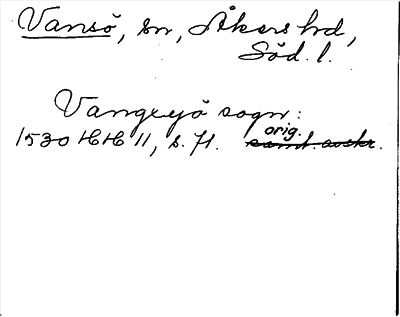 Vansö, sn, Åkers hd,
Söd. l.
Vangxyö sogn:
orig.
1530 HH 11, s. 71. samt. avskr.